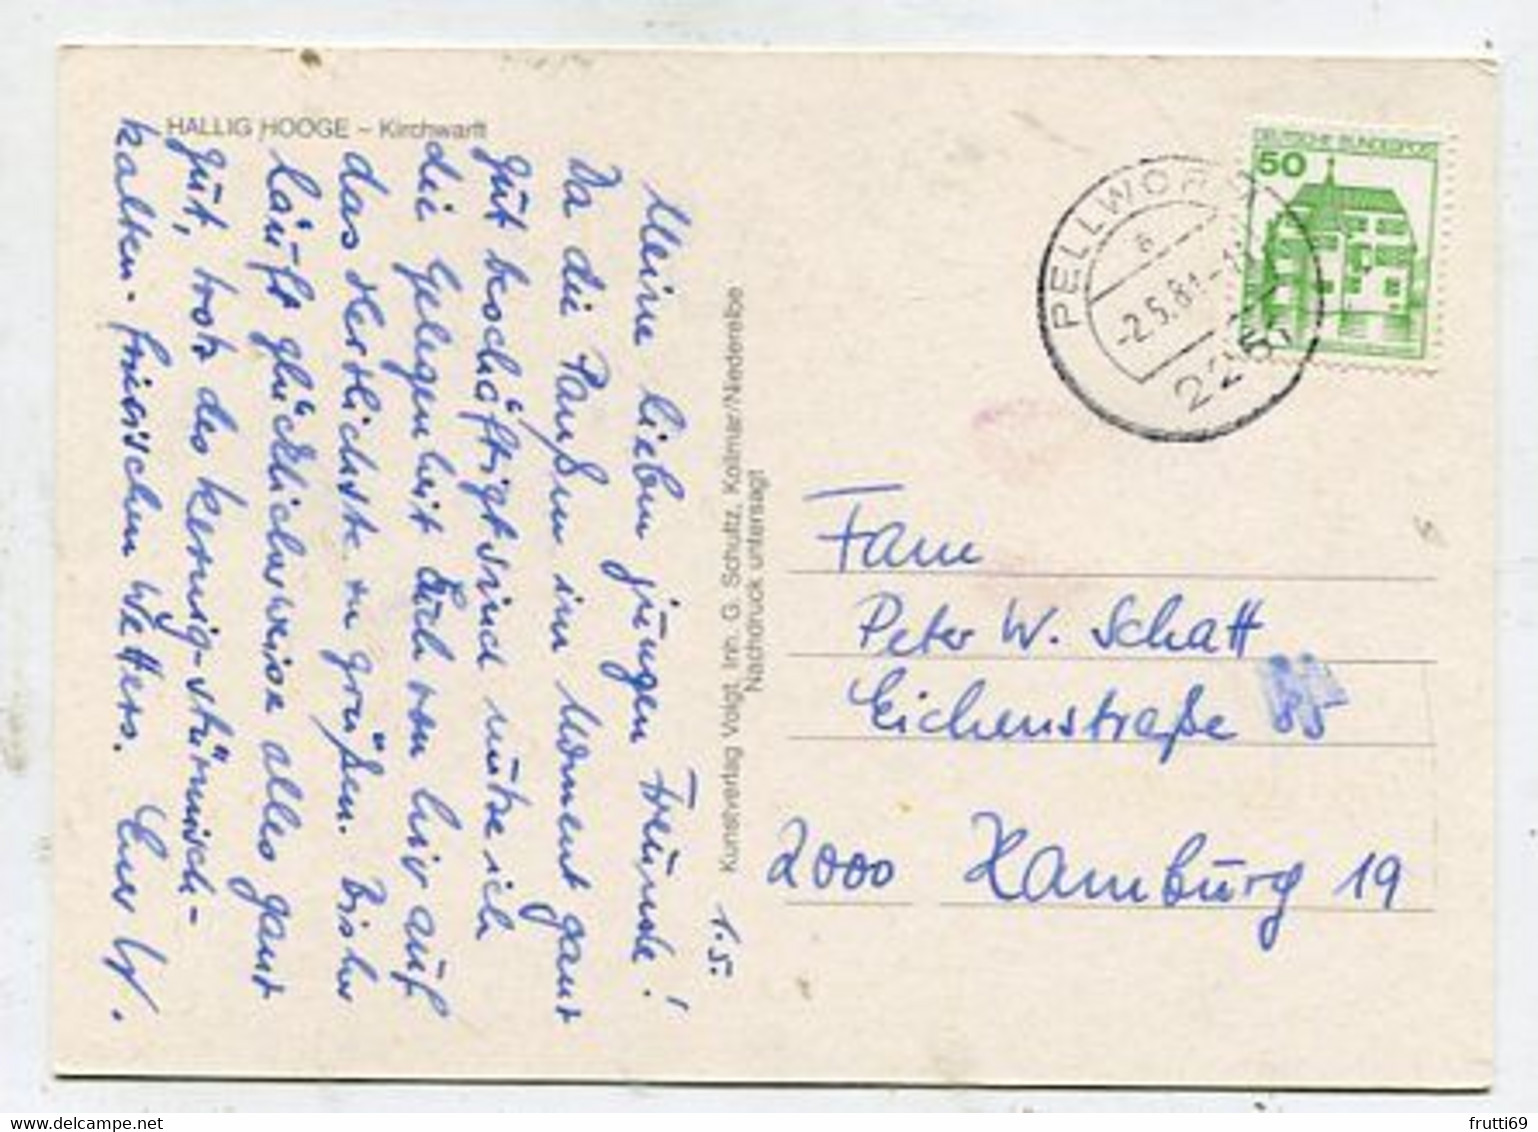 HALLIG HOOGE – Kirchwarft
1.5.
Meine lieben jungen Freunde!
Da die Paußen im Moment ganz
gut beschäftigt sind nütze ich
die Gelegenheit Euch von hier auf
das Herzlichste zu grüßen. Bisher
läuft glücklicherweise alles ganz
gut, trotz des kernig-stürmisch-
kalten-friesischen Wetters. Euer W.
Kunstverlag Voigt, Inh. G. Schultz, Kollmar/Niederelbe
Nachdruck untersagt
DEUTSCHE BUNDESPOST
50
PELLWORM
a
-2.5.81-
Fam
Peter W. Schatt
Eichenstraße
2000 Hamburg 19
www.delcampe.net
frutti69